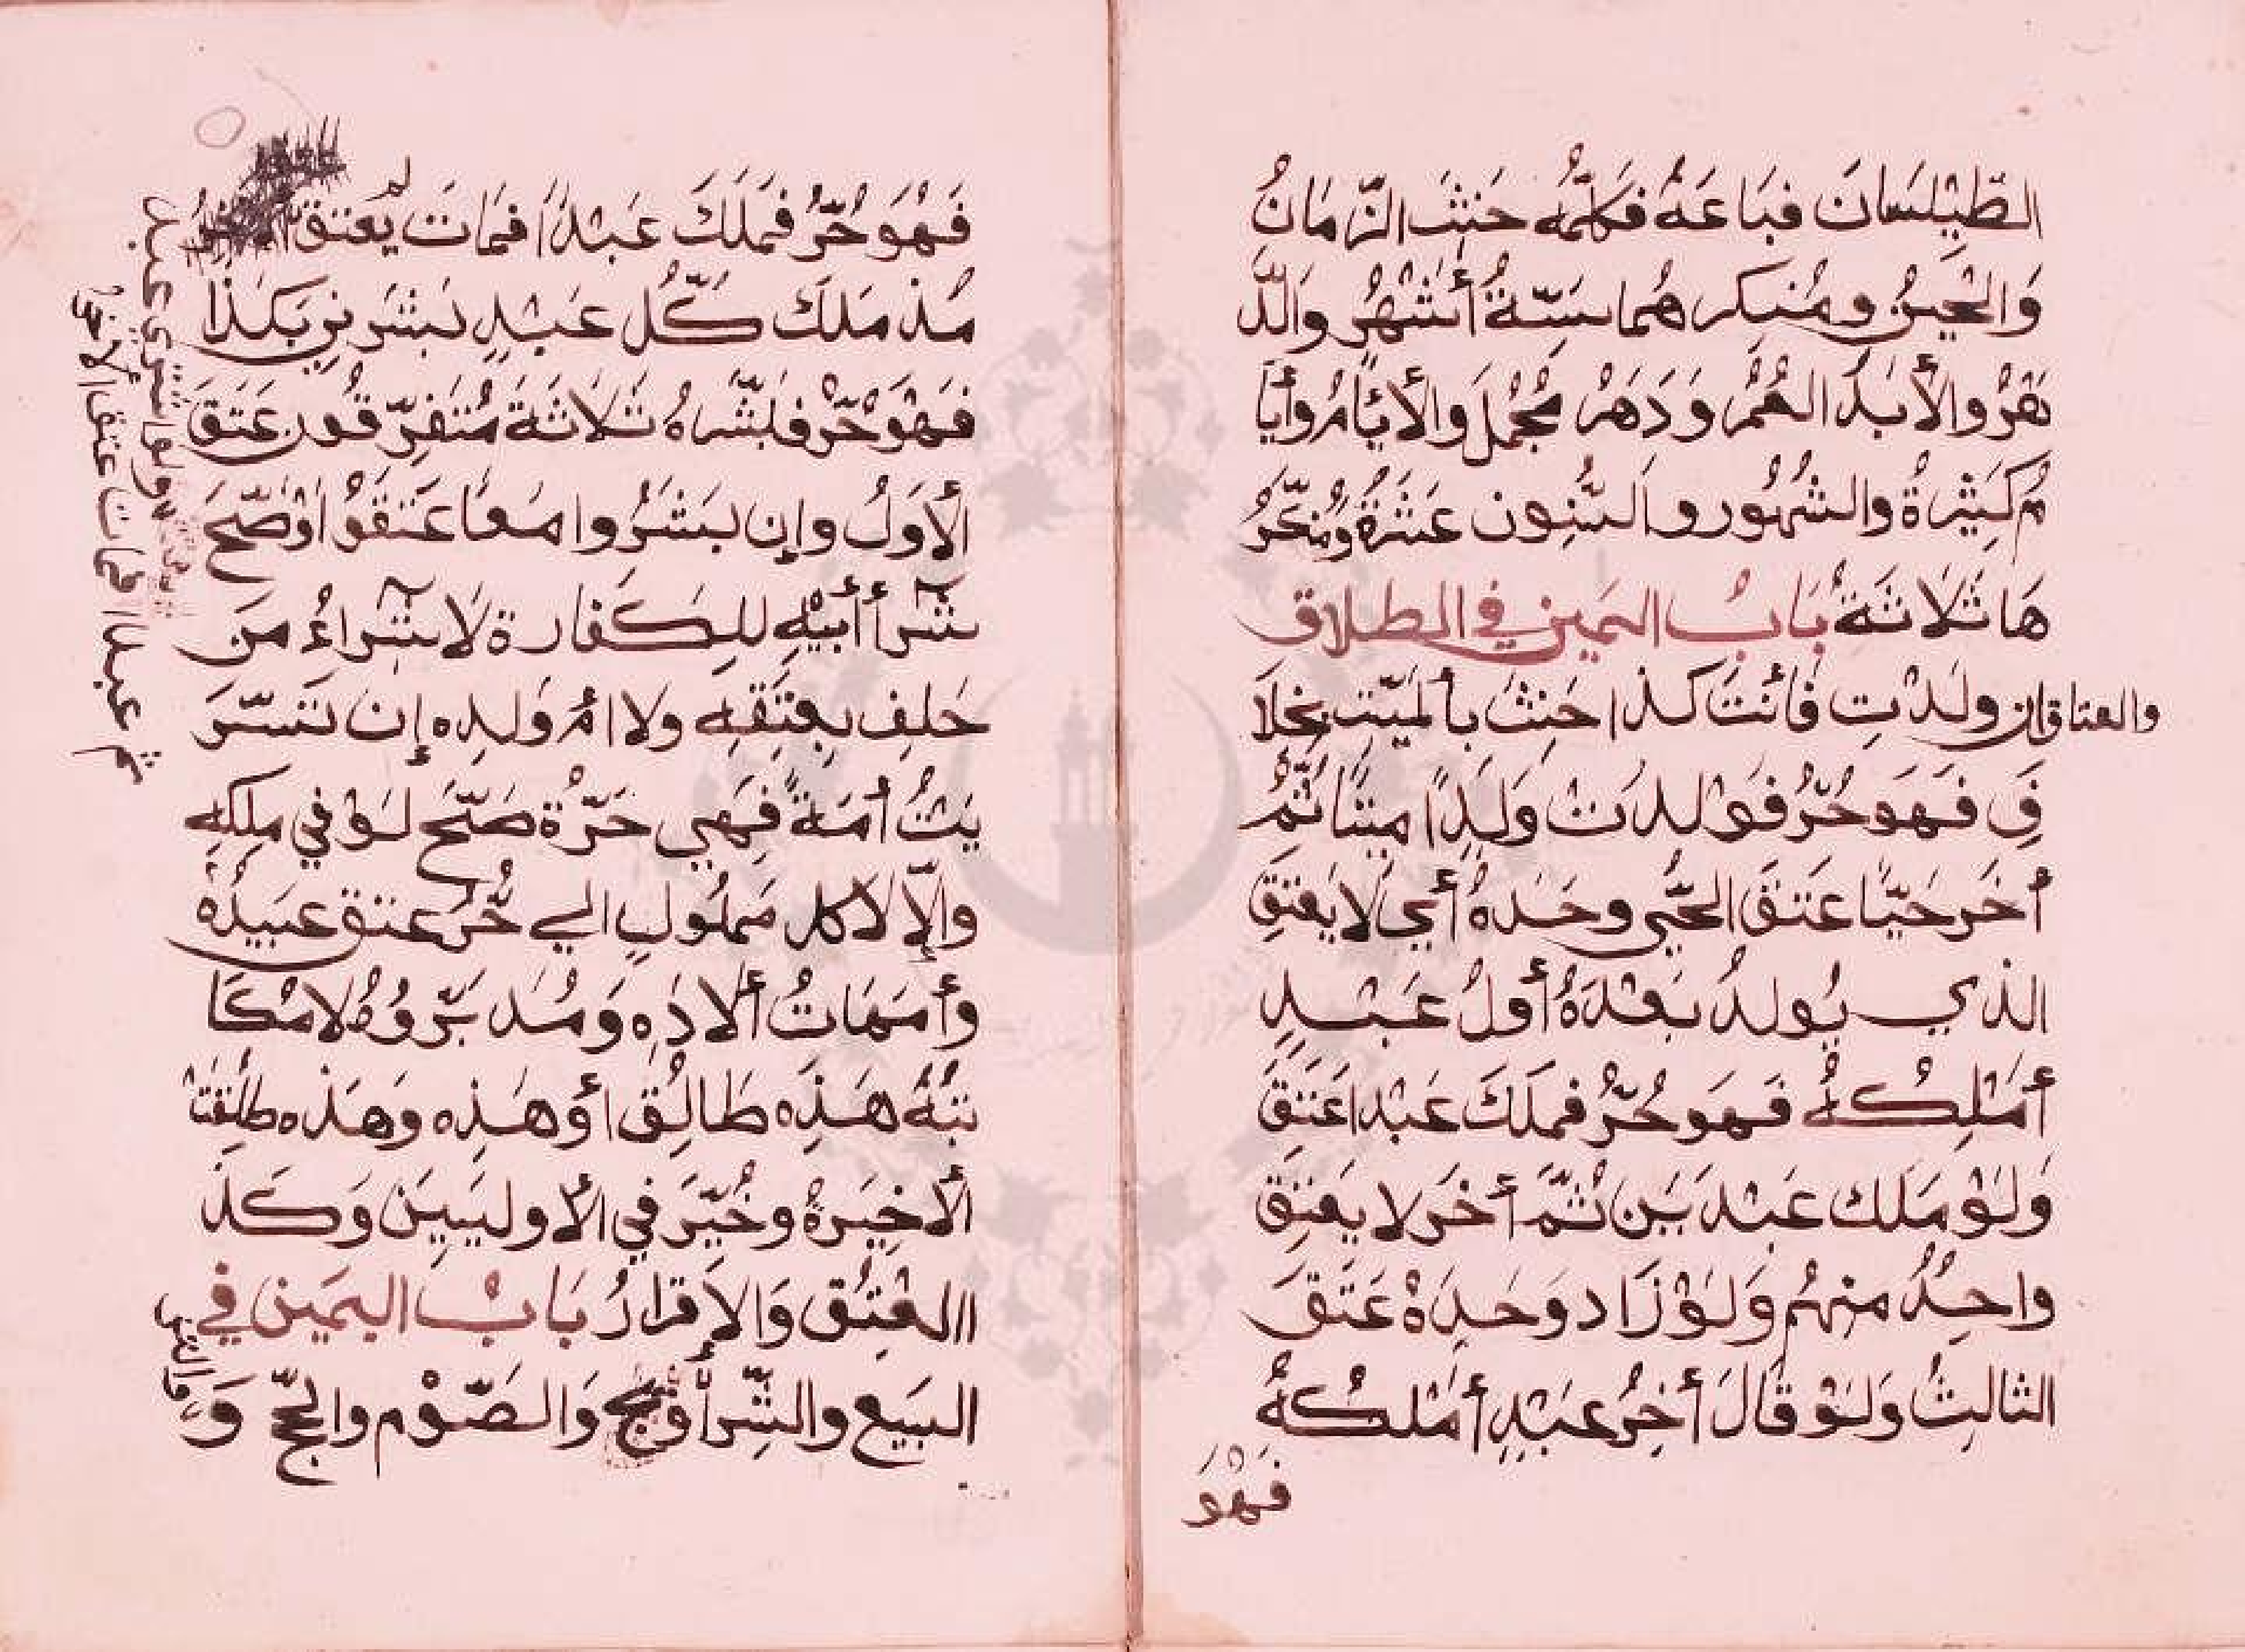 الطَّيْلَسَانَ فَبَاعَهُ فَكَلَّمَهُ حَنِثَ الزَّمَانُ
وَالحِينُ ومُنَكر هُما سِتَّةُ أَشْهُرٍ وَالدَّ
هْرُ والأَبَدُ العُمُرُ وَدَهْرٌ مُجْمَلٌ والأَيَّامُ وأَيَّا
مٌ كَثِيْرَةٌ والشُهُور والسِّنُون عَشَرَةٌ ومُنَكَّرُ
هَا ثَلَاثَةٌ بَابُ اليَمِينِ في الطلاق
والعتاق إن ولدْتِ فَأَنْتَ كذا حَنِثَ بالمَيِّت بخلَا
فِ فَهَو حُرٌّ فَوَلدَتْ وَلَدًا ميتًا ثُمَّ
أخَر حَيًّا عَتَقَ الحَيُّ وحَدهُ أي لا يعْتِقِ
الذي يُولدُ بَعْدَهُ أولُ عَبْدٍ
أمْلِكُهُ فَهَو حُرٌّ فملَكَ عَبْدا عَتَقَ
وَلَوْ مَلَك عَبْدَيَن ثُمَّ أخَر لا يَعْتِقِ
واحِدٌ منهُم وَلَوْ زَاد وَحَدِهْ عَتَقَ
الثالثُ وَلَوْ قَالَ أخِرُ عَبْدٍ أمْلكُهُ
فَهْوَ
فَهْوَ حُرٌّ فَمَلَكَ عَبْدًا فمَاتَ لم يعتق
مُذ مَلَك كُلُّ عَبْدٍ بَشَرَنِي بَكَذَا
فَهْوَ حُرٌّ فبشَّرهُ ثَلَاثَةٌ مُتَفرِّقُون عَتَقَ
الأَوَلُ وإن بَشَرُوا مَعًا عَتَقُوا وْصَحَّ
شرآ أبَيْهِ للكَفارة لَا شراءُ مَن
حَلف بعتقِهِ ولا امُ وَلدِه إن تَسَرَّ
يَتُ أمَةً فَهي حَرَّةٌ صَحَّ لوْ في مِلكِهِ
وإلّا لَا كل مملُوكٍ لي حُرٌ عتق عبيدُهُ
وأمَهَاتُ ألادِهِ وَمُدَبَّروُهُ لا مُكَا
تبُهُ هَذِه طَالِقٌ أو هَذِه وَهَذه طلقَتْ
الاخِيَرةُ وخُيِّرَ في الأوليَيِنَ وَكَذَ
االعِتْق وَالإقرارُ بَابُ اليَمَينِ في
البَيَع والشِّرأ والصَّوْم والحَجِّ وَ